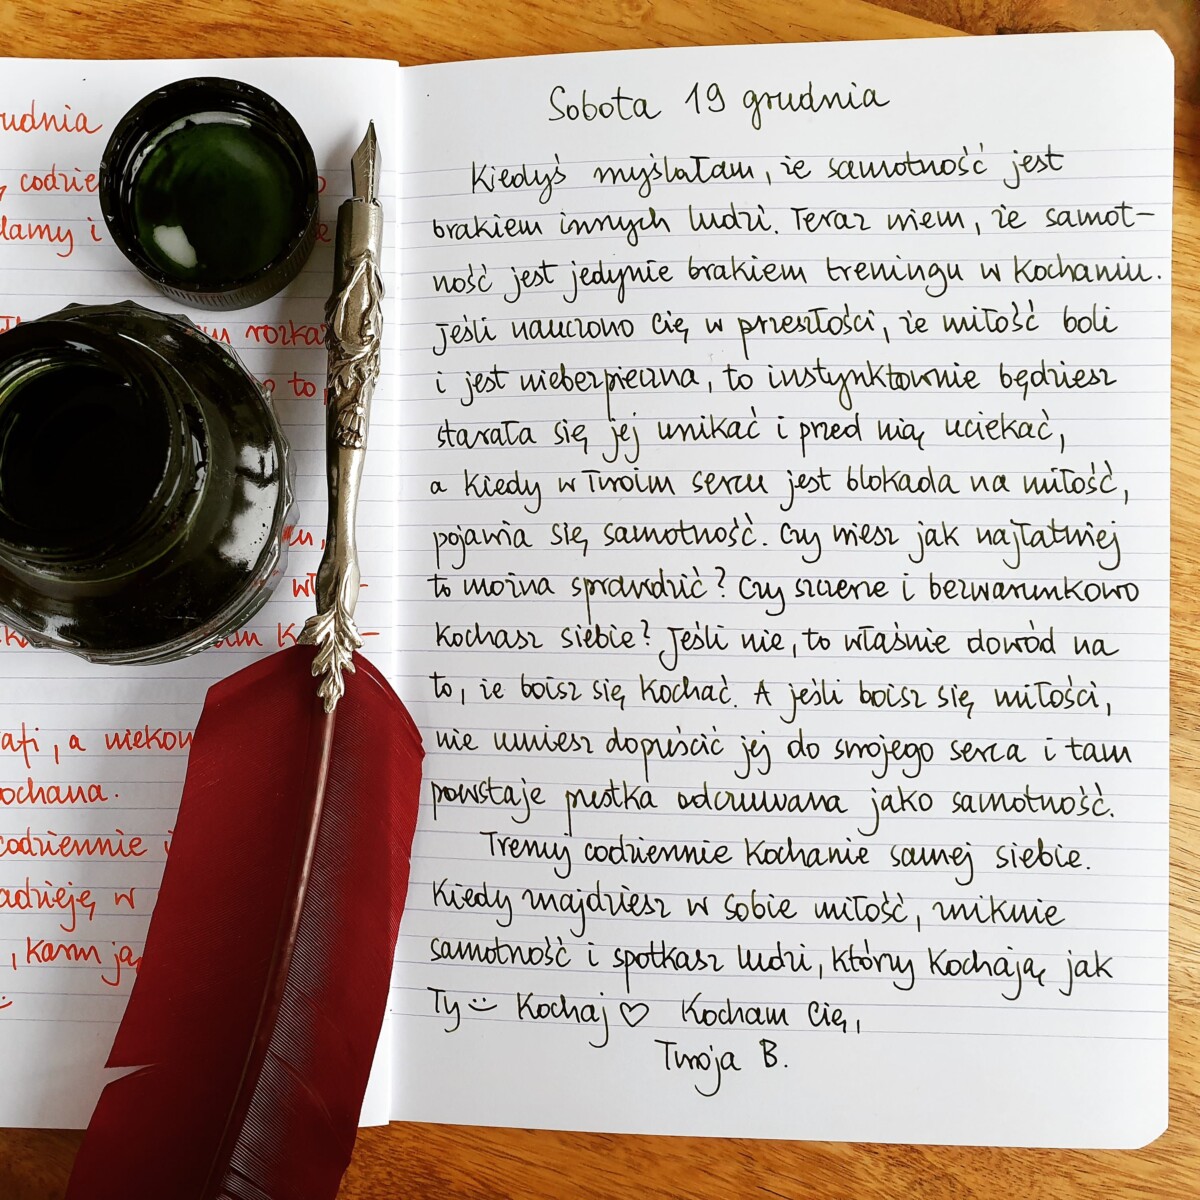 rudnia
codzie
lamy i
rozka
to
wł-
afi, a niekon
ochana.
codziennie i
adzieję w
, karm ją
Sobota 19 grudnia
Kiedyś myślałam, że samotność jest
brakiem innych ludzi. Teraz wiem, że samot-
ność jest jedynie brakiem treningu w kochaniu.
Jeśli nauczono Cię w przeszłości, że miłość boli
i jest niebezpieczna, to instynktownie będziesz
starała się jej unikać i przed nią uciekać,
a kiedy w Twoim sercu jest blokada na miłość,
pojawia się samotność. Czy wiesz jak najłatwiej
to można sprawdzić? Czy szczerze i bezwarunkowo
kochasz siebie? Jeśli nie, to właśnie dowód na
to, że boisz się kochać. A jeśli boisz się miłości,
nie umiesz dopuścić jej do swojego serca i tam
powstaje pustka odczuwana jako samotność.
Trenuj codziennie kochanie samej siebie.
Kiedy znajdziesz w sobie miłość, zniknie
samotność i spotkasz ludzi, którzy kochają jak
Ty☺ Kochaj♡ Kocham Cię,
Twoja B.